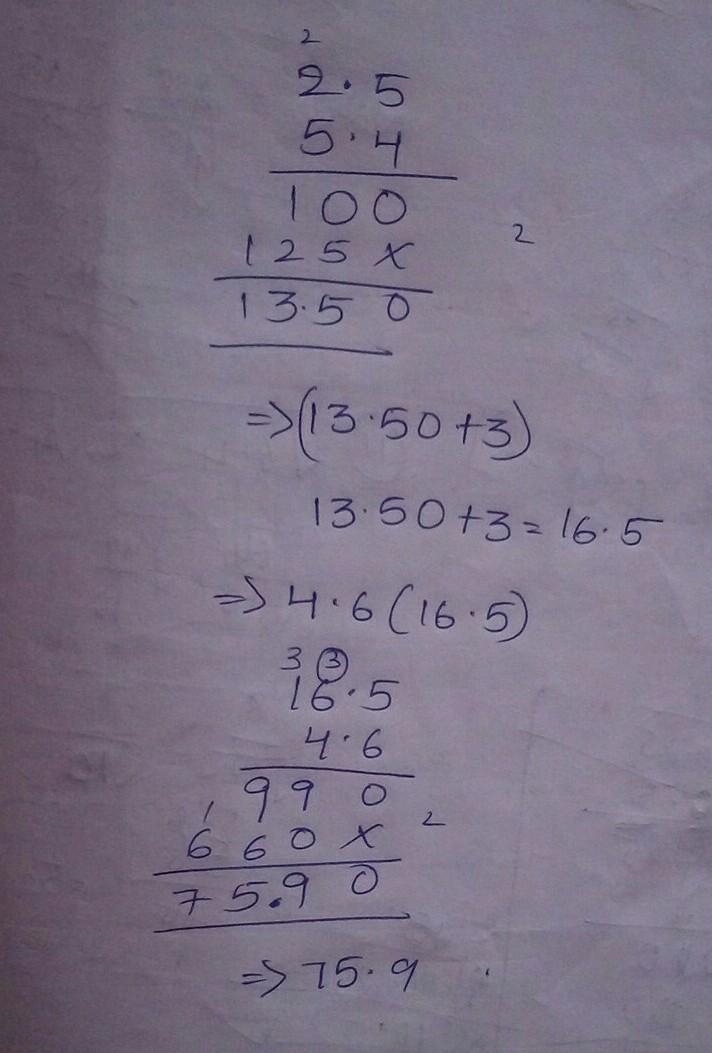 2
2.5
5.4
100
125x 2
13.50
=>(13.50+3)
13.50+3=16.5
=>4.6(16.5)
3 3
16.5
4.6
990
1
660x 2
75.90
=>75.9